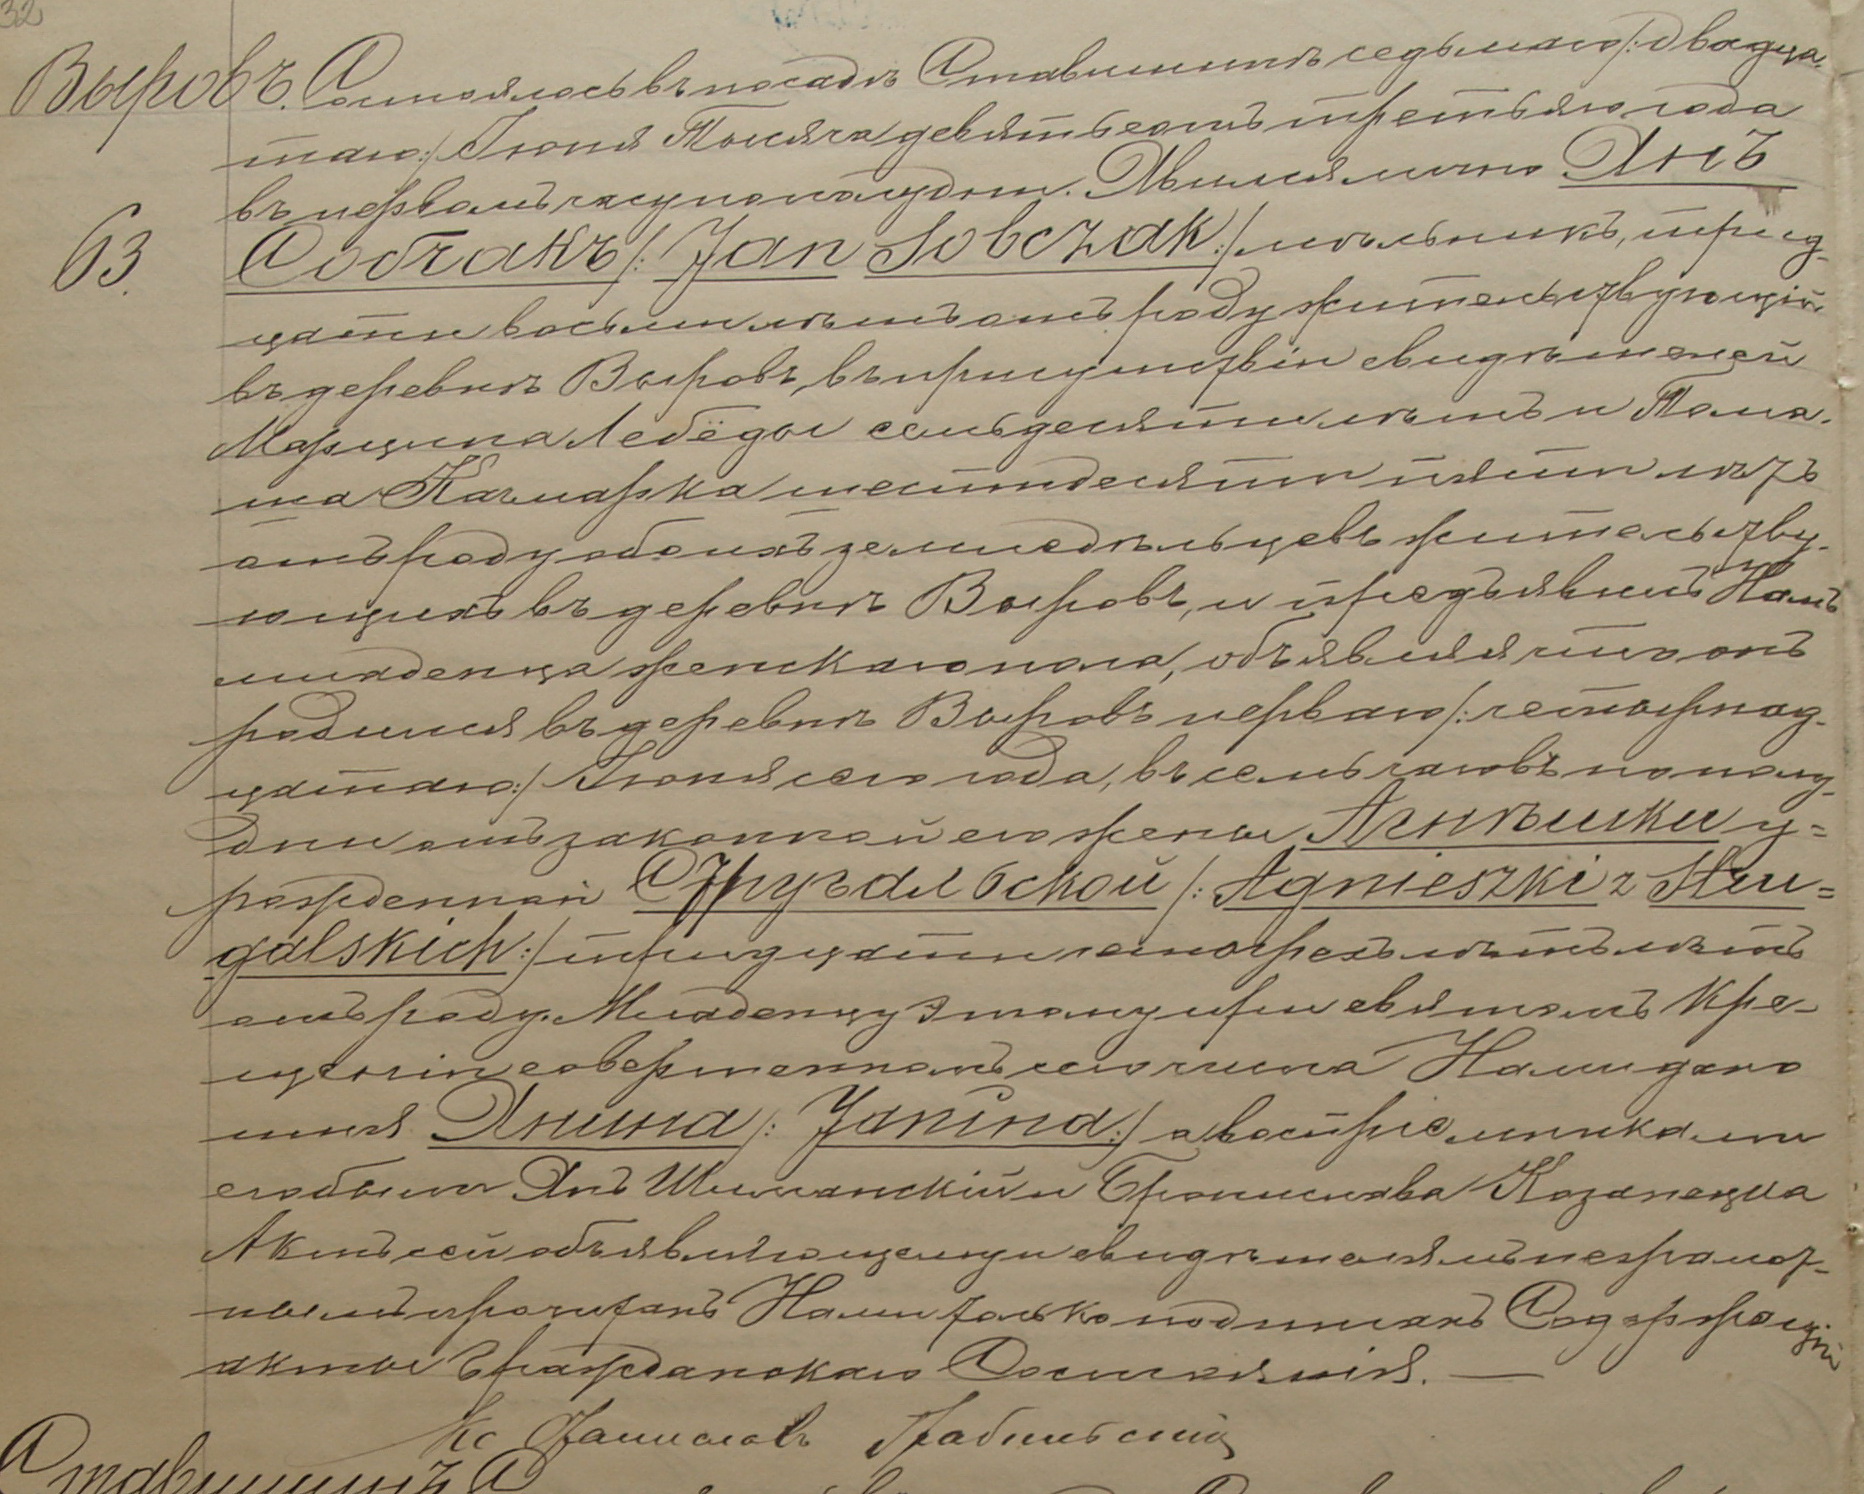 32
Выровъ. Состоялось въ посадѣ Ставишинѣ седьмаго /: двадца-
таго :/ Іюня Тысяча девятьсотъ третьяго года
въ первомъ часу по полудни. Явился лично Янъ
63. Собчакъ /: Jan Sobczak :/ мѣльникъ, трид-
цати восьми лѣтъ отъ роду жительствующій
въ деревнѣ Выровъ, въ присутствіи свидѣтелей
Марцина Лебёды семьдесяти лѣтъ и Тома-
ша Качмарка шестидесяти пяти лѣтъ
отъ роду обоихъ земледѣльцевъ жительству-
ющихъ въ деревнѣ Выровъ, и предъявилъ Намъ
младенца женскаго пола, объявляя что онъ
родился въ деревнѣ Выровъ перваго /: четырнад-
цатаго :/ Іюня сего года, въ семь часовъ по полу-
дни отъ законной его жены Агнѣшки у=
рожденной Стругальской /: Agnieszki z Stru=
galskich :/ тридцати четырехъ лѣтъ лѣтъ
отъ роду. Младенцу этому при святомъ Кре-
щеніи совершенномъ сего числа Нами дано
имя Янина /: Janina :/ а воспріемниками
его были Янъ Шиманскій и Бронислава
Актъ сей объявляющему и свидѣтелямъ неграмот-
нымъ прочитанъ Нами только подписанъ Содержащій
акты Гражданскаго Состоянія. —
Кс
Ставишинъ С